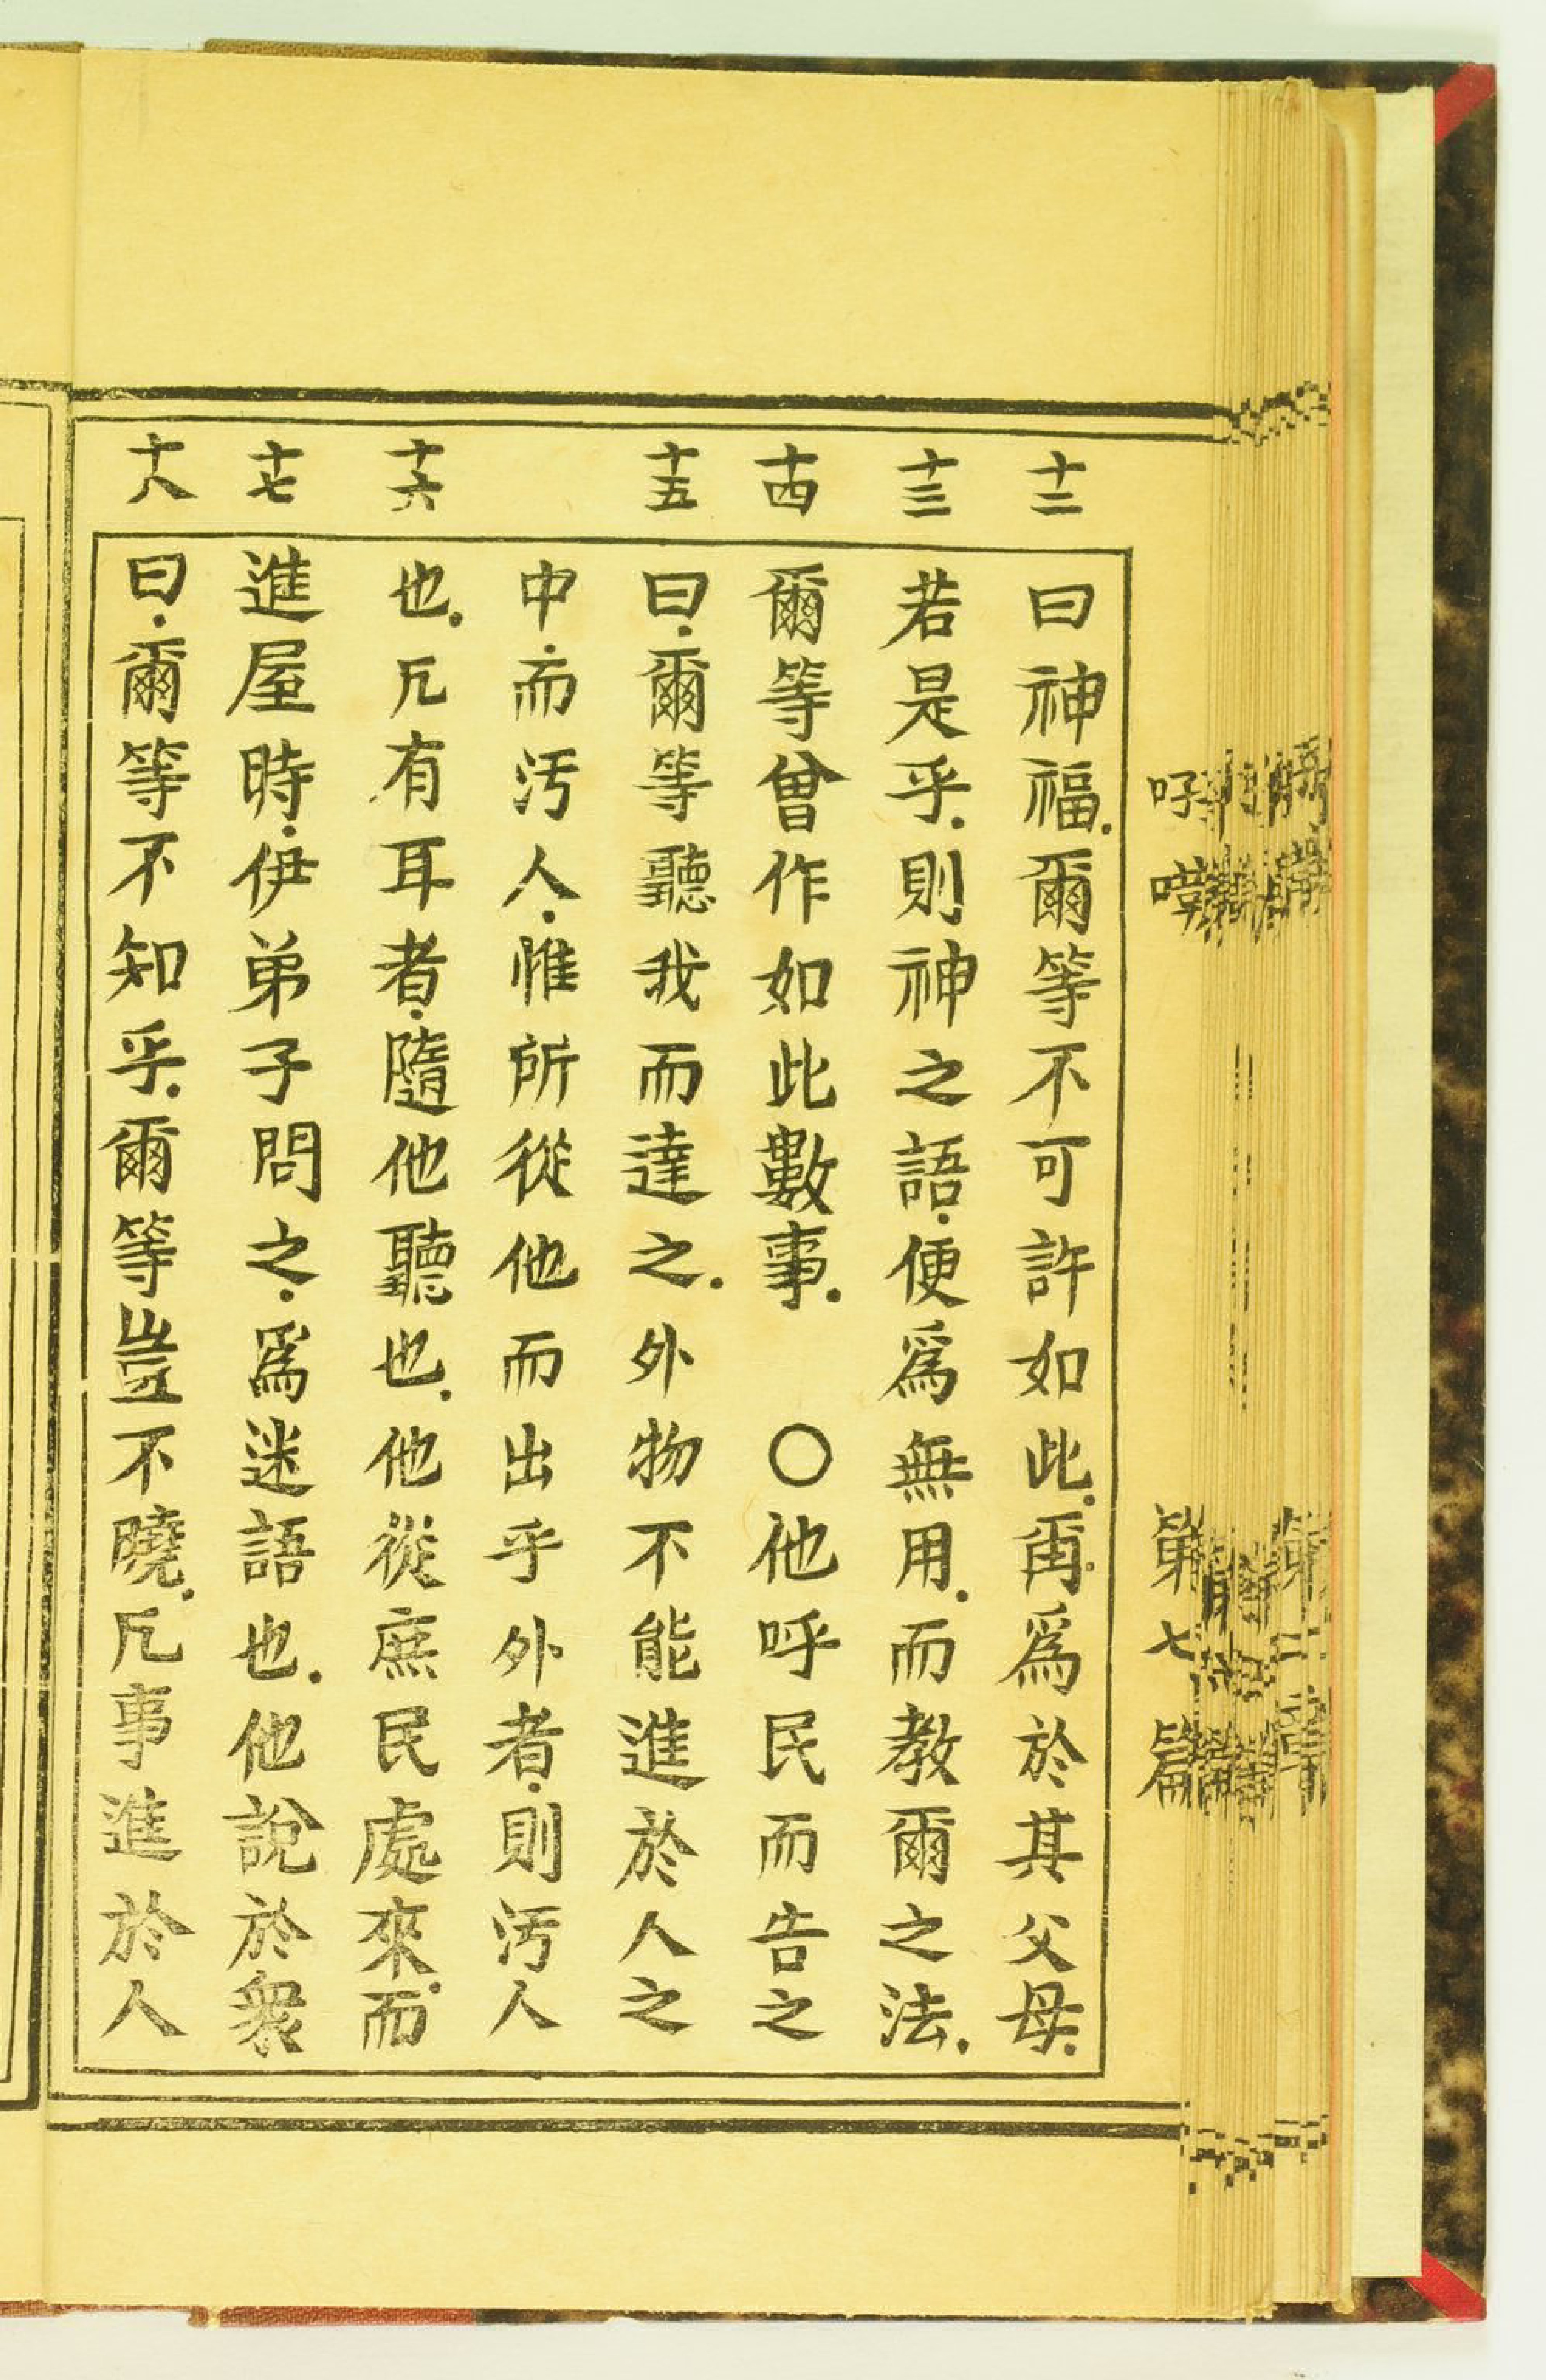 十二 曰神福．爾等不可許如此．爾．爲於其父母．
十三 若是乎．則神之語．便爲無用．而教爾之法．
十四 爾等曾作如此數事．○他呼民而告之
十五 曰．爾等聽我而達之．外物不能進於人之
中．而汚人．惟所從他而出乎外者．則汚人
十六 也．凢有耳者．隨他聽也．他從庶民處來．而
十七 進屋時．伊弟子問之．爲迷語也．他說於衆
十八 曰．爾等不知乎．爾等豈不曉．凢事進於人
第七篇